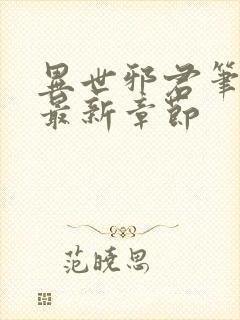 異世邪君筆
最新章節
范曉思